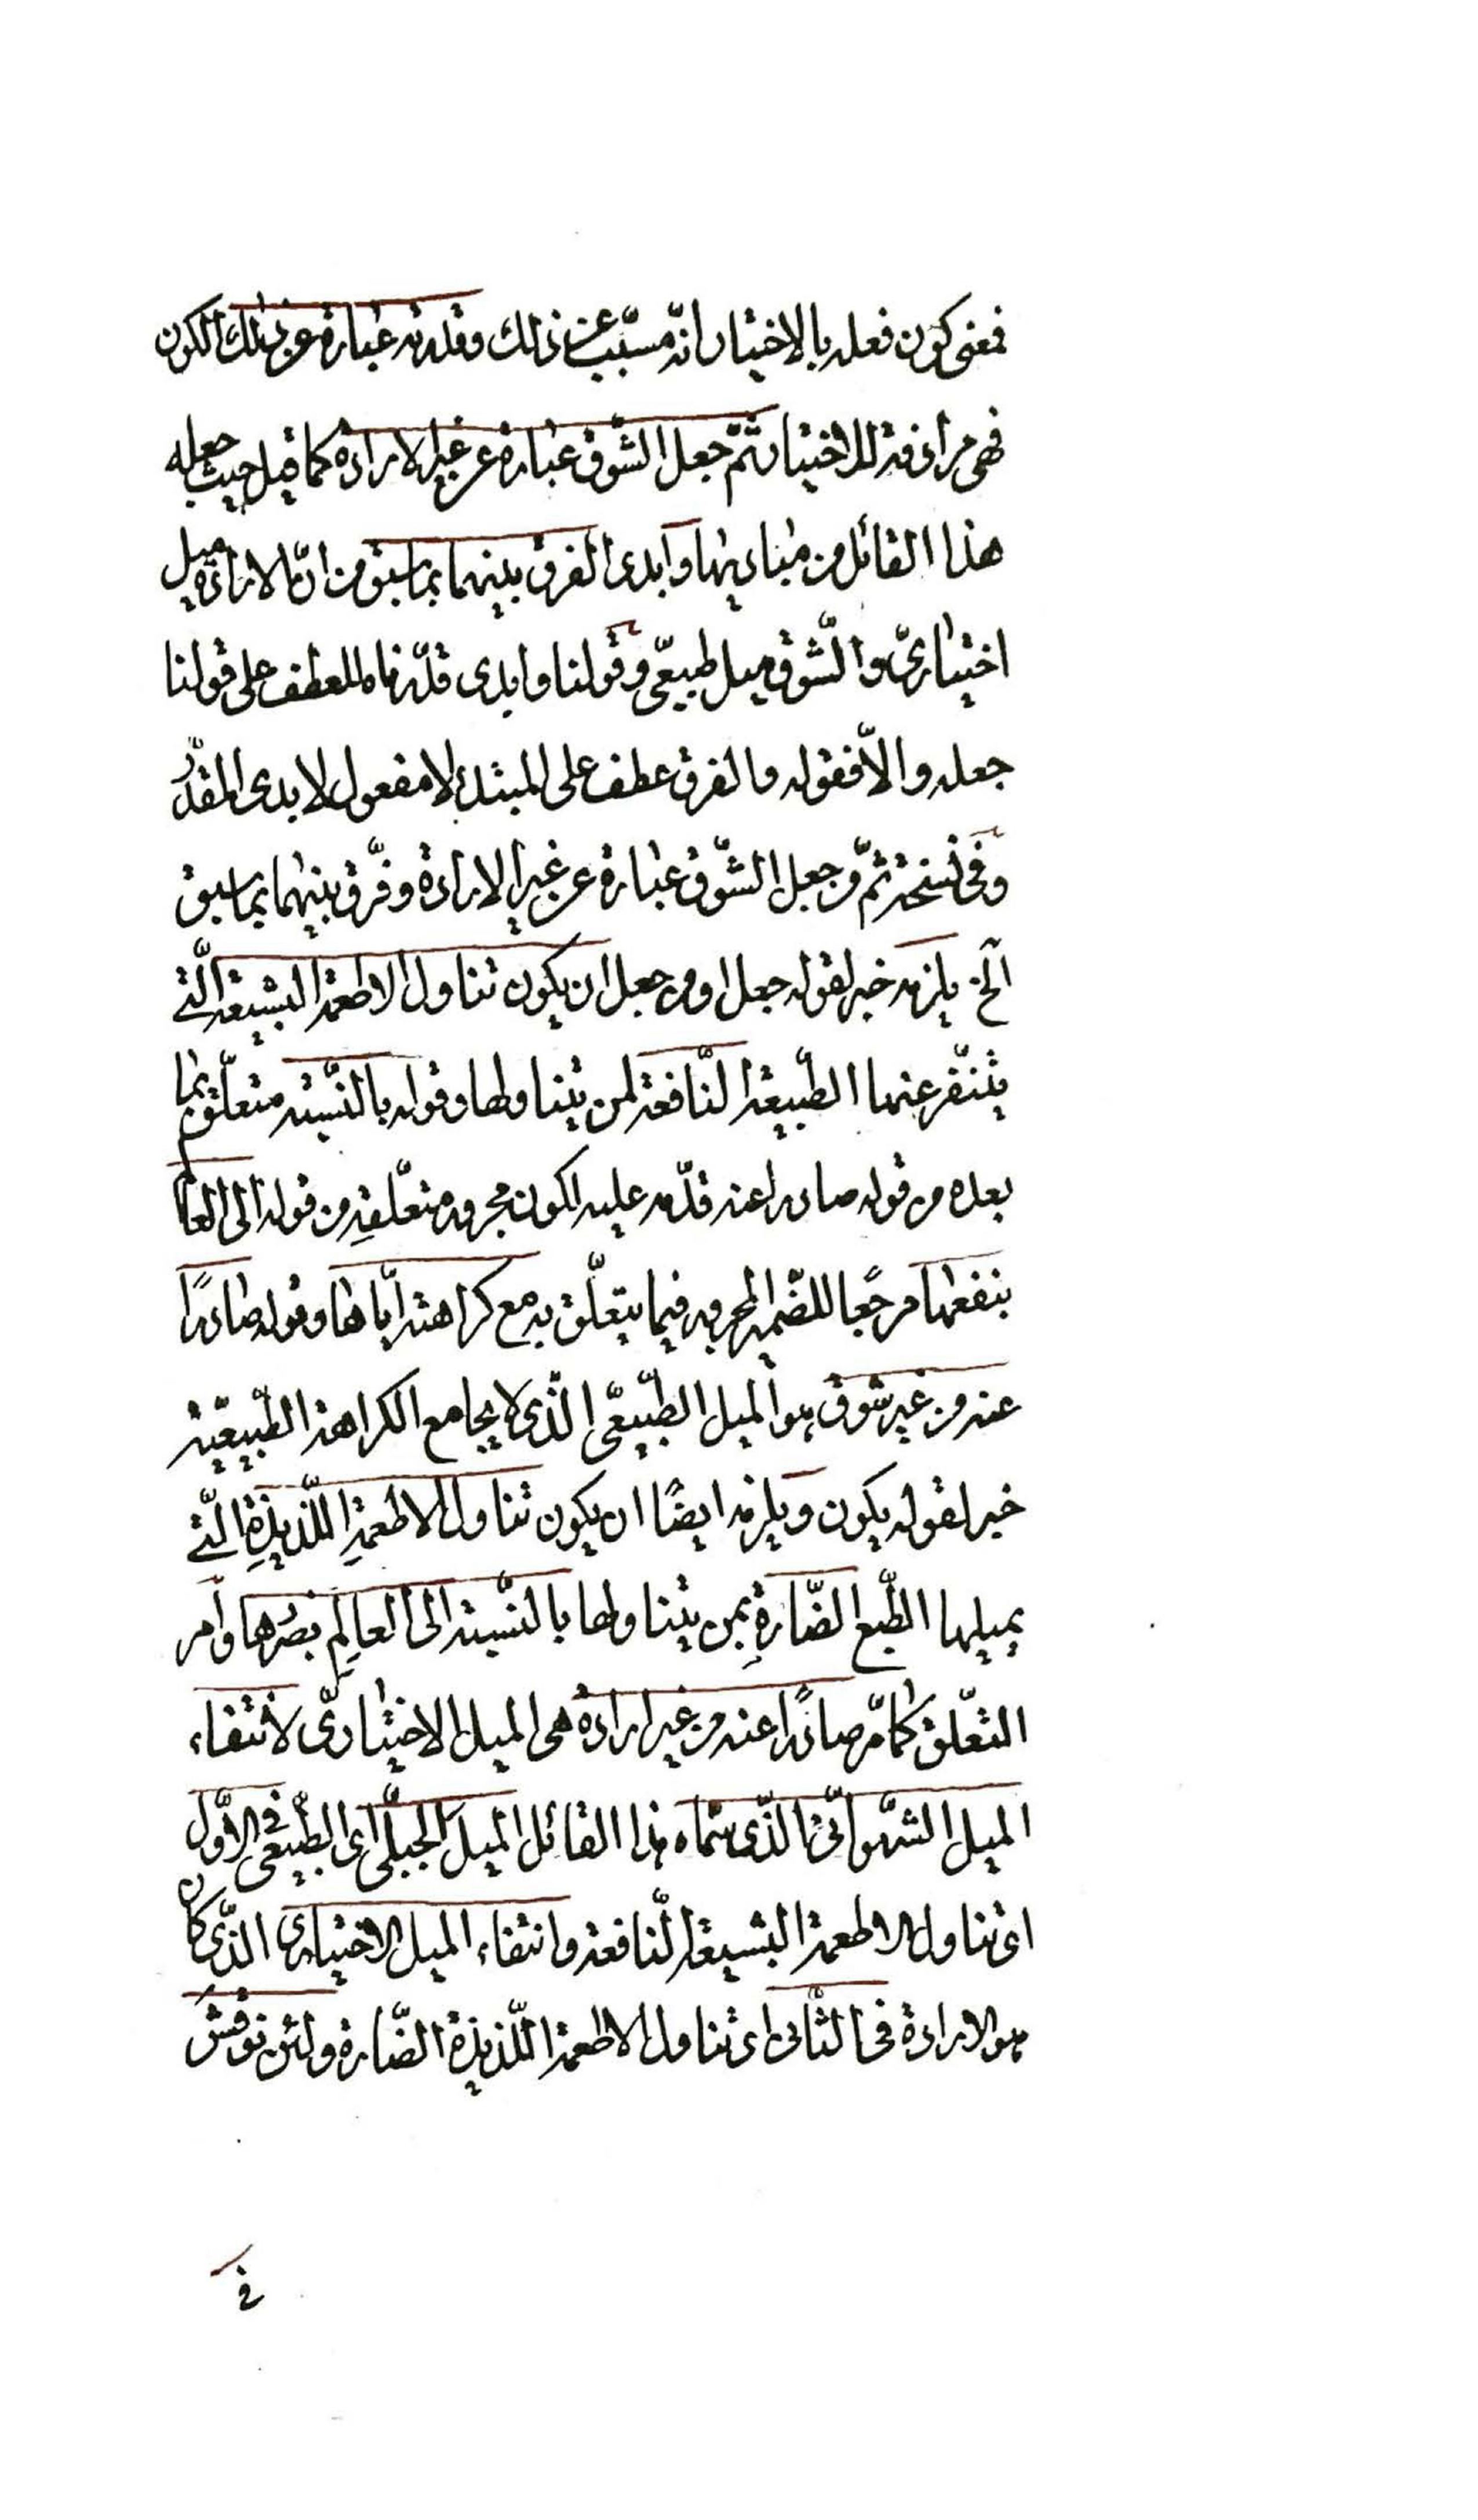 فمعنى كون فعله بالاختيار انّه مسبّب عن ذلك وقدرته عبارة عن ذلك الكون
فهى مرادفة للاختيار ثمّ جعل الشّوق عبارة عن غير الارادة كما قيل حيث جعله
هذا القائل من مباديها وابدى الفرق بينهما بما سبق من انّ الارادة ميل
اختيارىّ والشّوق ميل طبيعىّ وقولنا وابدى قدّرناه للعطف على قولنا
جعله والّا فقوله والفرق عطف على المبتدا لا مفعول لابدى المقدّر
وفى نسخة ثمّ من جعل الشّوق عبارة عن غير الارادة وفرّق بينهما بما سبق
الخ يلزمه خبر لقوله جعل او من جعل ان يكون تناول الاطعمة البشيعة الّتى
يتنفّر عنها الطّبيعة النّافعة لمن يتناولها وقوله بالنّسبة متعلّق بما
بعده من قوله صادرا عنه قدّمه عليه لكون مجرور متعلّقه من قوله الى العالم
بنفعها مرجعًا للضّمير المجرور فيما يتعلّق به مع كراهته ايّاها وقوله صادرًا
عنه من غير شوق هو الميل الطّبيعىّ الّذى لا يجامع الكراهة الطّبيعيّة
خبر لقوله يكون ويلزمه ايضًا ان يكون تناول الاطعمةِ اللّذيذةِ الّتى
يميلها الطّبع الضّارةِ بمن يتناولها بالنّسبة الى العالِمِ بضرّها وامر
التعلّق كما مّر صادرًا عنه من غير ارادة هى الميل الاختيارىّ لانتفاء
الميل الشّهوانّى الّذى سمّاه هذا القائل الميل الجبلّى اى الطّبيعى فى الاوّل
اى تناول الاطعمة البشيعة النّافعة وانتفاء الميل الاختيارى الّذى كان
هو الارادة فى الثّانى اى تناول الاطعمة اللّذيذة الضّارة ولئن نوقش